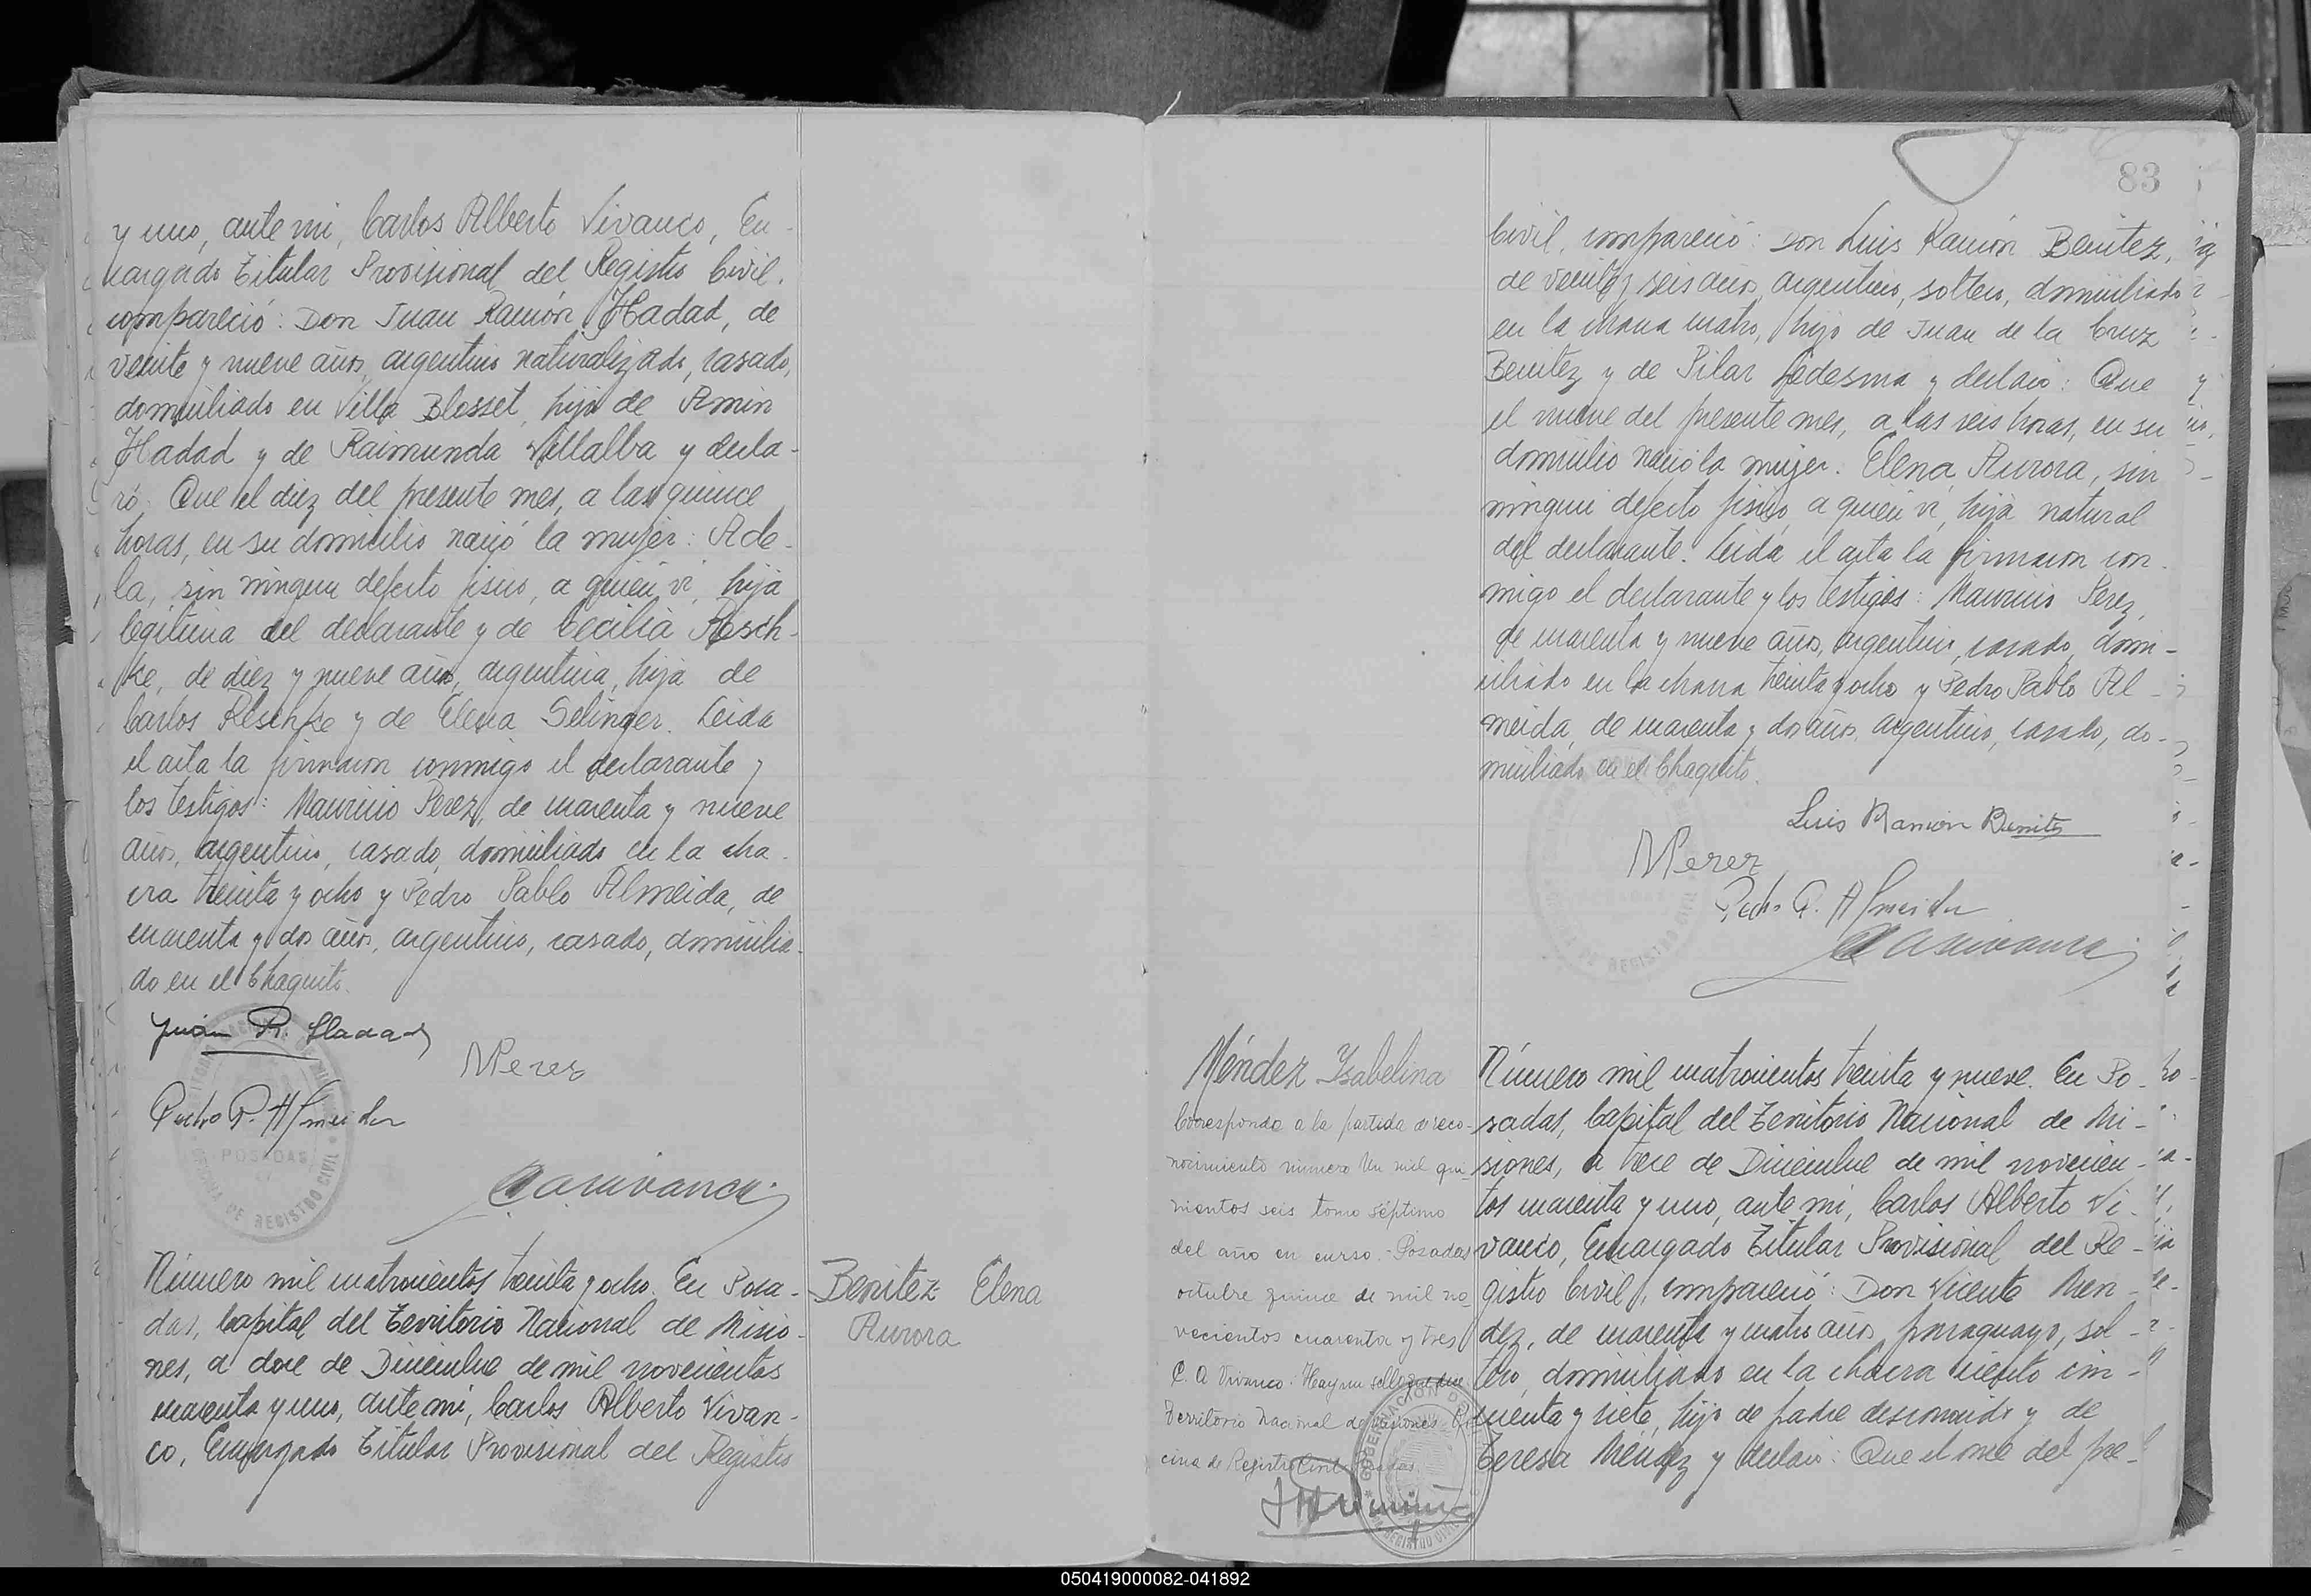 y uno, ante mi, Carlos Alberto Vivanco, En-
cargado Titular Provisional del Registro Civil.
compareció: Don Juan Ramón Hadad, de
veinte y nueve años, argentino naturalizado, casado,
domiciliado en Villa Blosset, hijo de Amin
Hadad y de Raimunda Villalba y decla-
ró: Que el diez del presente mes, a las quince
horas, en su domicilio nació la mujer: Ade-
la, sin ningun defecto fisico, a quien vi, hija
legitima del declarante y de Cecilia Resch-
ke, de diez y nueve años, argentina, hija de
Carlos Reschke y de Elena Selinger. Leida
el acta la firmaron conmigo el declarante y
los testigos: Mauricio Perez, de cuarenta y nueve
años, argentino, casado, domiciliado en la cha-
cra treinta y ocho y Pedro Pablo Almeida, de
cuarenta y dos años, argentino, casado, domicilia-
do en el Chaquito.
Juan R. Hadad
MPerez
Pedro P. Almeida
POSADAS
DE REGISTRO CIVIL
CAVivanco
Número mil cuatrocientos treinta y ocho. En Posa-
das, Capital del Territorio Nacional de Misio-
nes, a doce de Diciembre de mil novecientos
cuarenta y uno, ante mi, Carlos Alberto Vivan-
co, Encargado Titular Provisional del Registro
Benitez Elena
Aurora
83
Civil, compareció: Don Luis Ramón Benitez,
de veinte y seis años, argentino, soltero, domiciliado
en la chacra cuatro, hijo de Juan de la Cruz
Benitez y de Pilar Ledesma y declaró: Que
el nueve del presente mes, a las seis horas, en su
domicilio nació la mujer: Elena Aurora, sin
ningun defecto fisico, a quien vi, hija natural
del declarante. Leida el acta la firmaron con-
migo el declarante y los testigos: Mauricio Perez,
de cuarenta y nueve años, argentino, casado, domi-
ciliado en la chacra treinta y ocho y Pedro Pablo Al-
meida, de cuarenta y dos años, argentino, casado, do-
miciliado en el Chaquito.
Luis Ramón Benitez
MPerez
Pedro P. Almeida
CAVivanco
Méndez Ysabelina
Corresponde a la partida de reco-
nocimiento numero Un mil qui-
nientos seis tomo séptimo
del año en curso.- Posadas
octubre quince de mil no-
vecientos cuarenta y tres
C. A Vivanco. Hay un sello que dice
Territorio Nacional de Misiones Ofi-
cina de Registro Civil Posadas.
Número mil cuatrocientos treinta y nueve. En Po-
sadas, Capital del Territorio Nacional de Mi-
siones, a trece de Diciembre de mil novecien-
tos cuarenta y uno, ante mi, Carlos Alberto Vi-
vanco, Encargado Titular Provisional del Re-
gistro Civil, compareció: Don Vicente Men-
dez, de cuarenta y cuatro años, paraguayo, sol-
tero, domiciliado en la chacra ciento cin-
cuenta y siete, hijo de padre desconocido y de
Teresa Méndez y declaró: Que el once del pre-
050419000082-041892